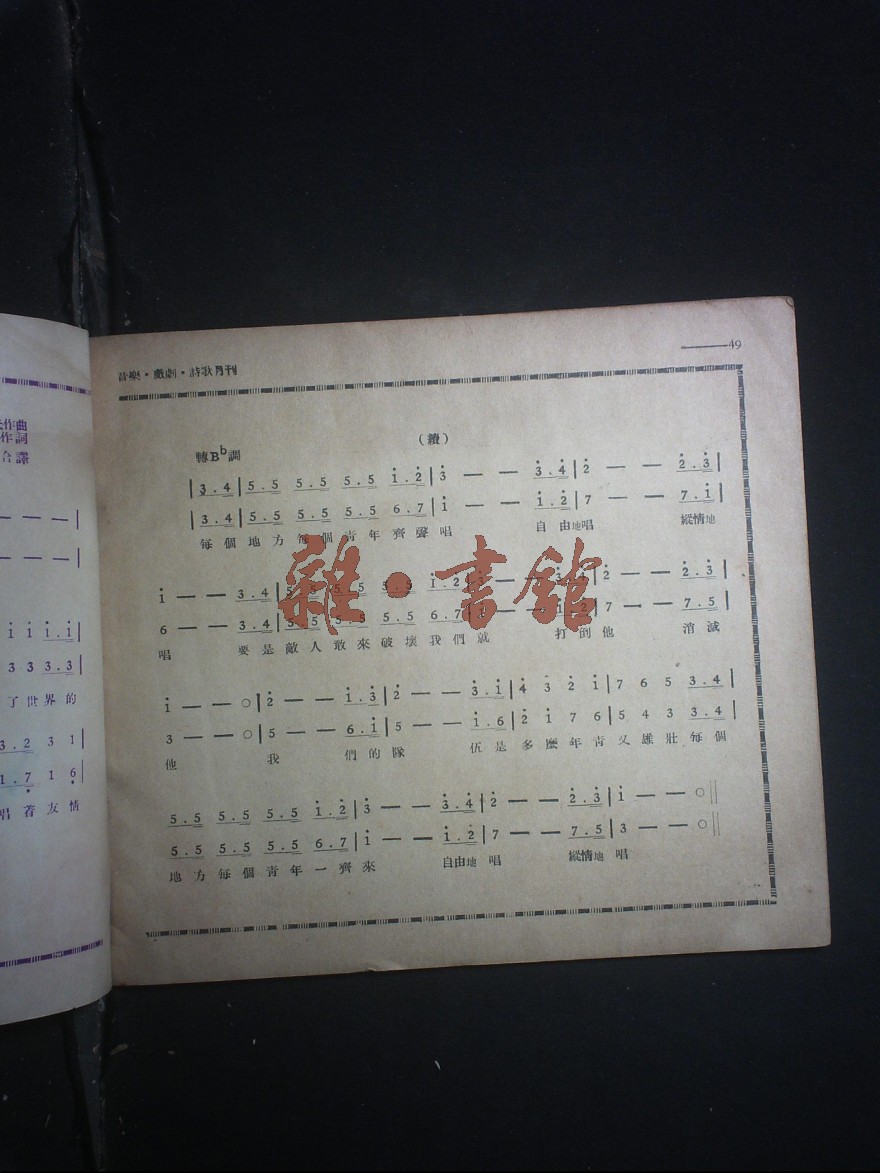 音樂・戲劇・詩歌月刊
49
作曲
作詞
合譯
— — |
— — |
i i i.i |
3 3 3.3 |
了世界的
3.2 3 1 |
1.7 1 6 |
唱着友情
(續)
轉Bb調
| 3.4 | 5.5 5.5 5.5 i.2̇ | 3̇ — — 3̇.4̇ | 2̇ — — 2̇.3̇ |
| 3.4 | 5.5 5.5 5.5 6.7 | i — — i.2̇ | 7 — — 7.i |
每個地方每個青年齊聲唱 自由地唱 縱情地
i — — 3.4 | 5.5 5.5 5.5 i.2̇ | 3̇ — — 3̇.4̇ | 2̇ — — 2̇.3̇ |
6 — — 3.4 | 5.5 5.5 5.5 6.7 | i — — i.2̇ | 7 — — 7.5 |
唱 要是敵人敢來破壞我們就 打倒他 消滅
i — — ○ | 2̇ — — i.3̇ | 2̇ — — 3̇.i | 4̇ 3̇ 2̇ i | 7 6 5 3.4 |
3 — — ○ | 5 — — 6.i | 5 — — i.6 | 2̇ i 7 6 | 5 4 3 3.4 |
他 我 們的隊 伍是多麼年青又雄壯每個
5.5 5.5 5.5 i.2̇ | 3̇ — — 3̇.4̇ | 2̇ — — 2̇.3̇ | i — — ○ ||
5.5 5.5 5.5 6.7 | i — — i.2̇ | 7 — — 7.5 | 3 — — ○ ||
地方每個青年一齊來 自由地唱 縱情地唱
雜・書館